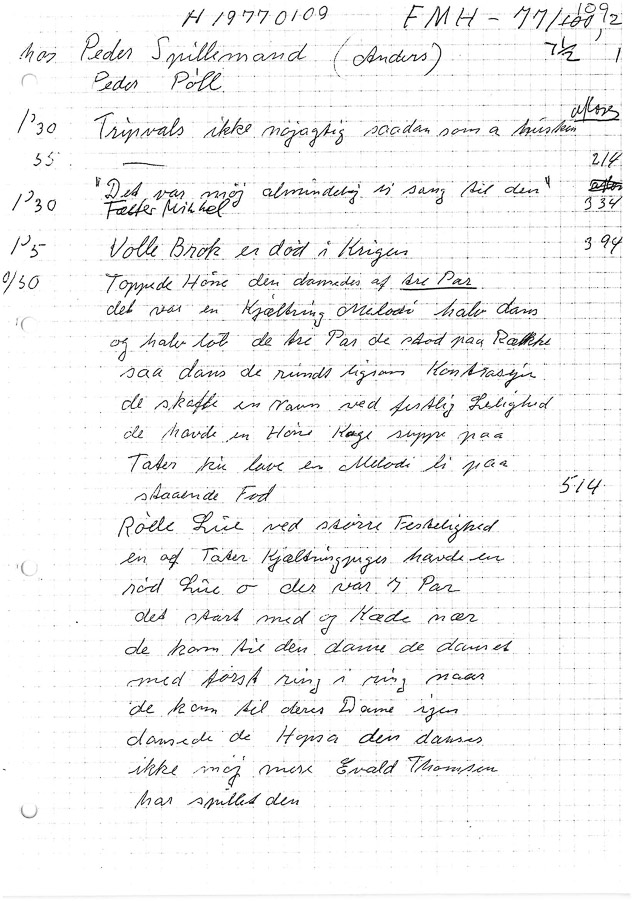 H 19770109 FMH - 77/109, 2
hos Peder Spillemand (Anders) 7½ 1
Peder Poll.
aflever
1'30 Tripvals ikke nøjagtig saadan som a husker
55 — 214
1'30 "Det var møj almindelig vi sang til den"
Fætter Mikkel 334
1'5 Volle Brok er død i Krigen 394
0/50 Toppede Høne den dansedes af tre Par
det var en Kjæltring Melodi halv dans
og halv löb de tre Par de stod paa Række
saa dans de rundt ligsom Kontrasejn
de skaffe en Navn ved festlig Leilighed
de havde en Höne Koge suppe paa
Tater ku lave en Melodi li paa
staaende Fod 514
Rölle Lue ved större Festelighed
en af Tater Kjæltringpiger havde en
röd Lue o der var 7 Par
det start med og Kæde nær
de kom til den dame de danset
med först ring i ring naar
de kom til deres Dame igen
dansede de Hopsa den danses
ikke møj mere Evald Thomsen
har spillet den